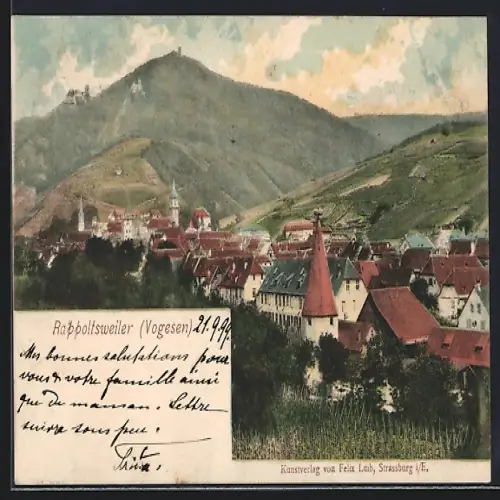 Rappoltsweiler (Vogesen) 21.9.99
Mes bonnes salutations pour
vous & votre famille ainsi
que de maman. Lettre
suivra sous peu.
Kunstverlag von Felix Luib, Strassburg i/E.